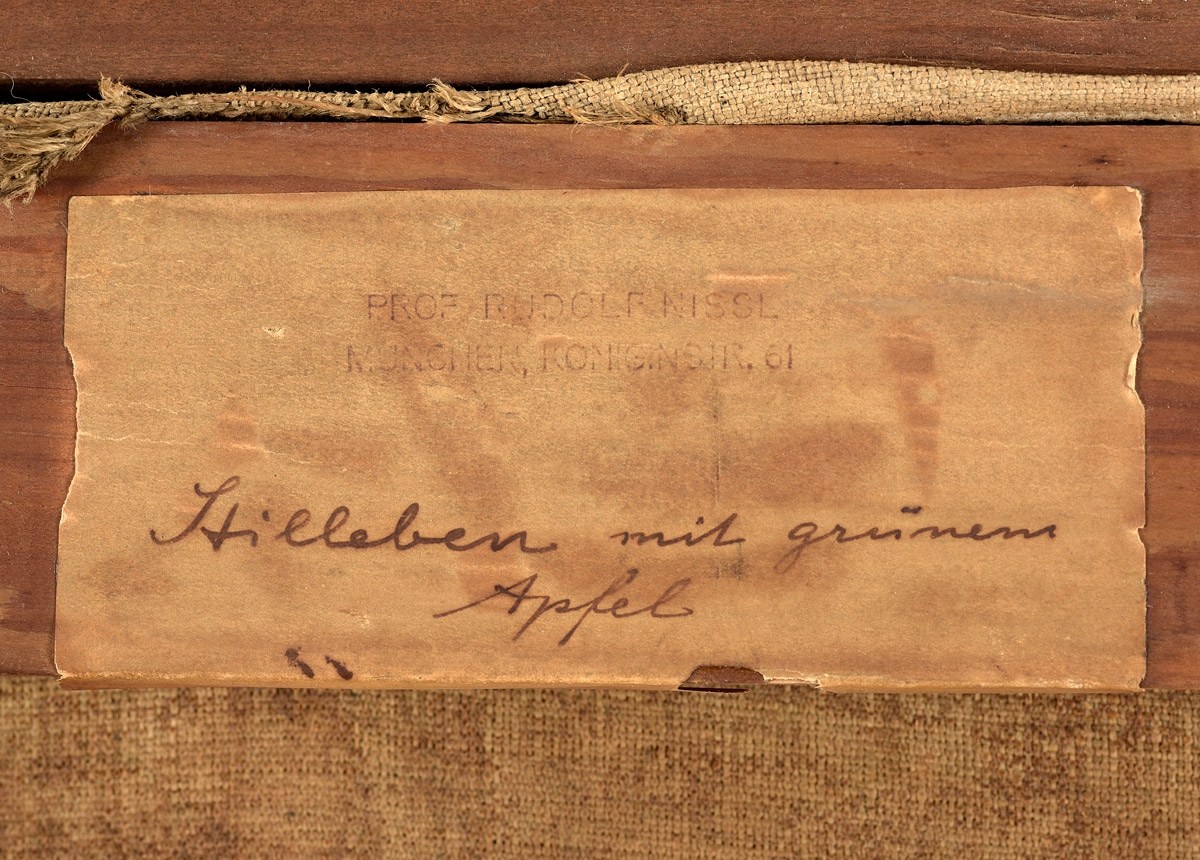 PROF. RUDOLF NISSL
MÜNCHEN, KÖNIGINSTR. 61
Stilleben mit grünem
Apfel